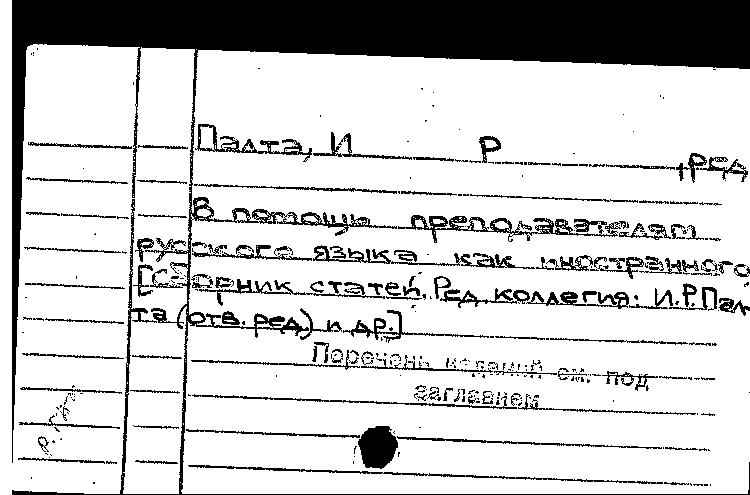 Палта, И Р , ред
В помощь преподавателям
русского языка как иностранного
[Сборник статей. Ред. коллегия: И.Р. Пал-
та (отв. ред.) и др.]
Перечень изданий см. под
заглавием